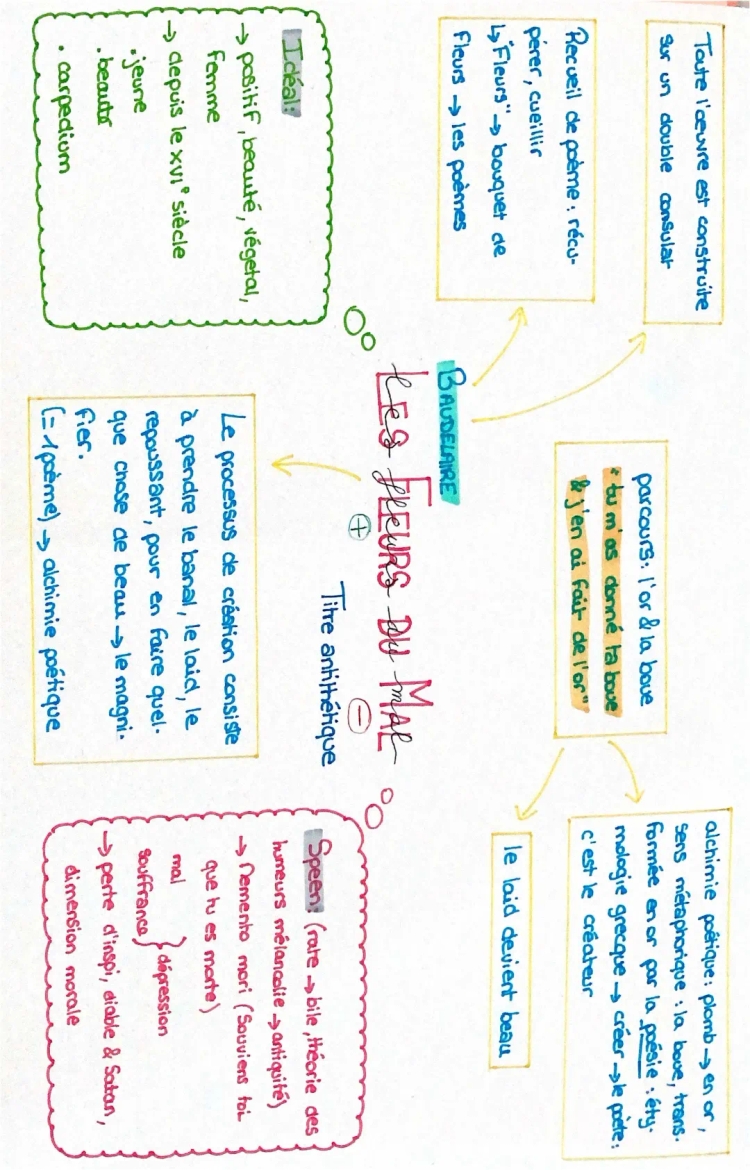 Toute l'œuvre est construite
sur un double consulat
Recueil de poème : récu-
pérer, cueillir
↳ "Fleurs" → bouquet de
fleurs → les poèmes
parcours : l'or & la boue
"tu m'as donné ta boue
& j'en ai fait de l'or"
alchimie poétique : plomb → en or,
sens métaphorique : la boue, trans-
formée en or par la poésie : éty-
mologie grecque → créer → le poète :
c'est le créateur
le laid devient beau
BAUDELAIRE
LES FLEURS DU MAL
les fleurs du mal
+
-
Titre antithétique
Idéal :
→ positif, beauté, végétal,
femme
→ depuis le XVI° siècle
. jeune
. beauté
. carpedium
Le processus de création consiste
à prendre le banal, le laid, le
repoussant, pour en faire quel-
que chose de beau → le magni-
fier.
(= 1 poème) → alchimie poétique
Speen : (rate → bile, théorie des
humeurs mélancolie → antiquité)
→ Memento mori (Souviens toi
que tu es morte)
mal
souffrance } dépression
→ perte d'inspi, diable & Satan,
dimension morale